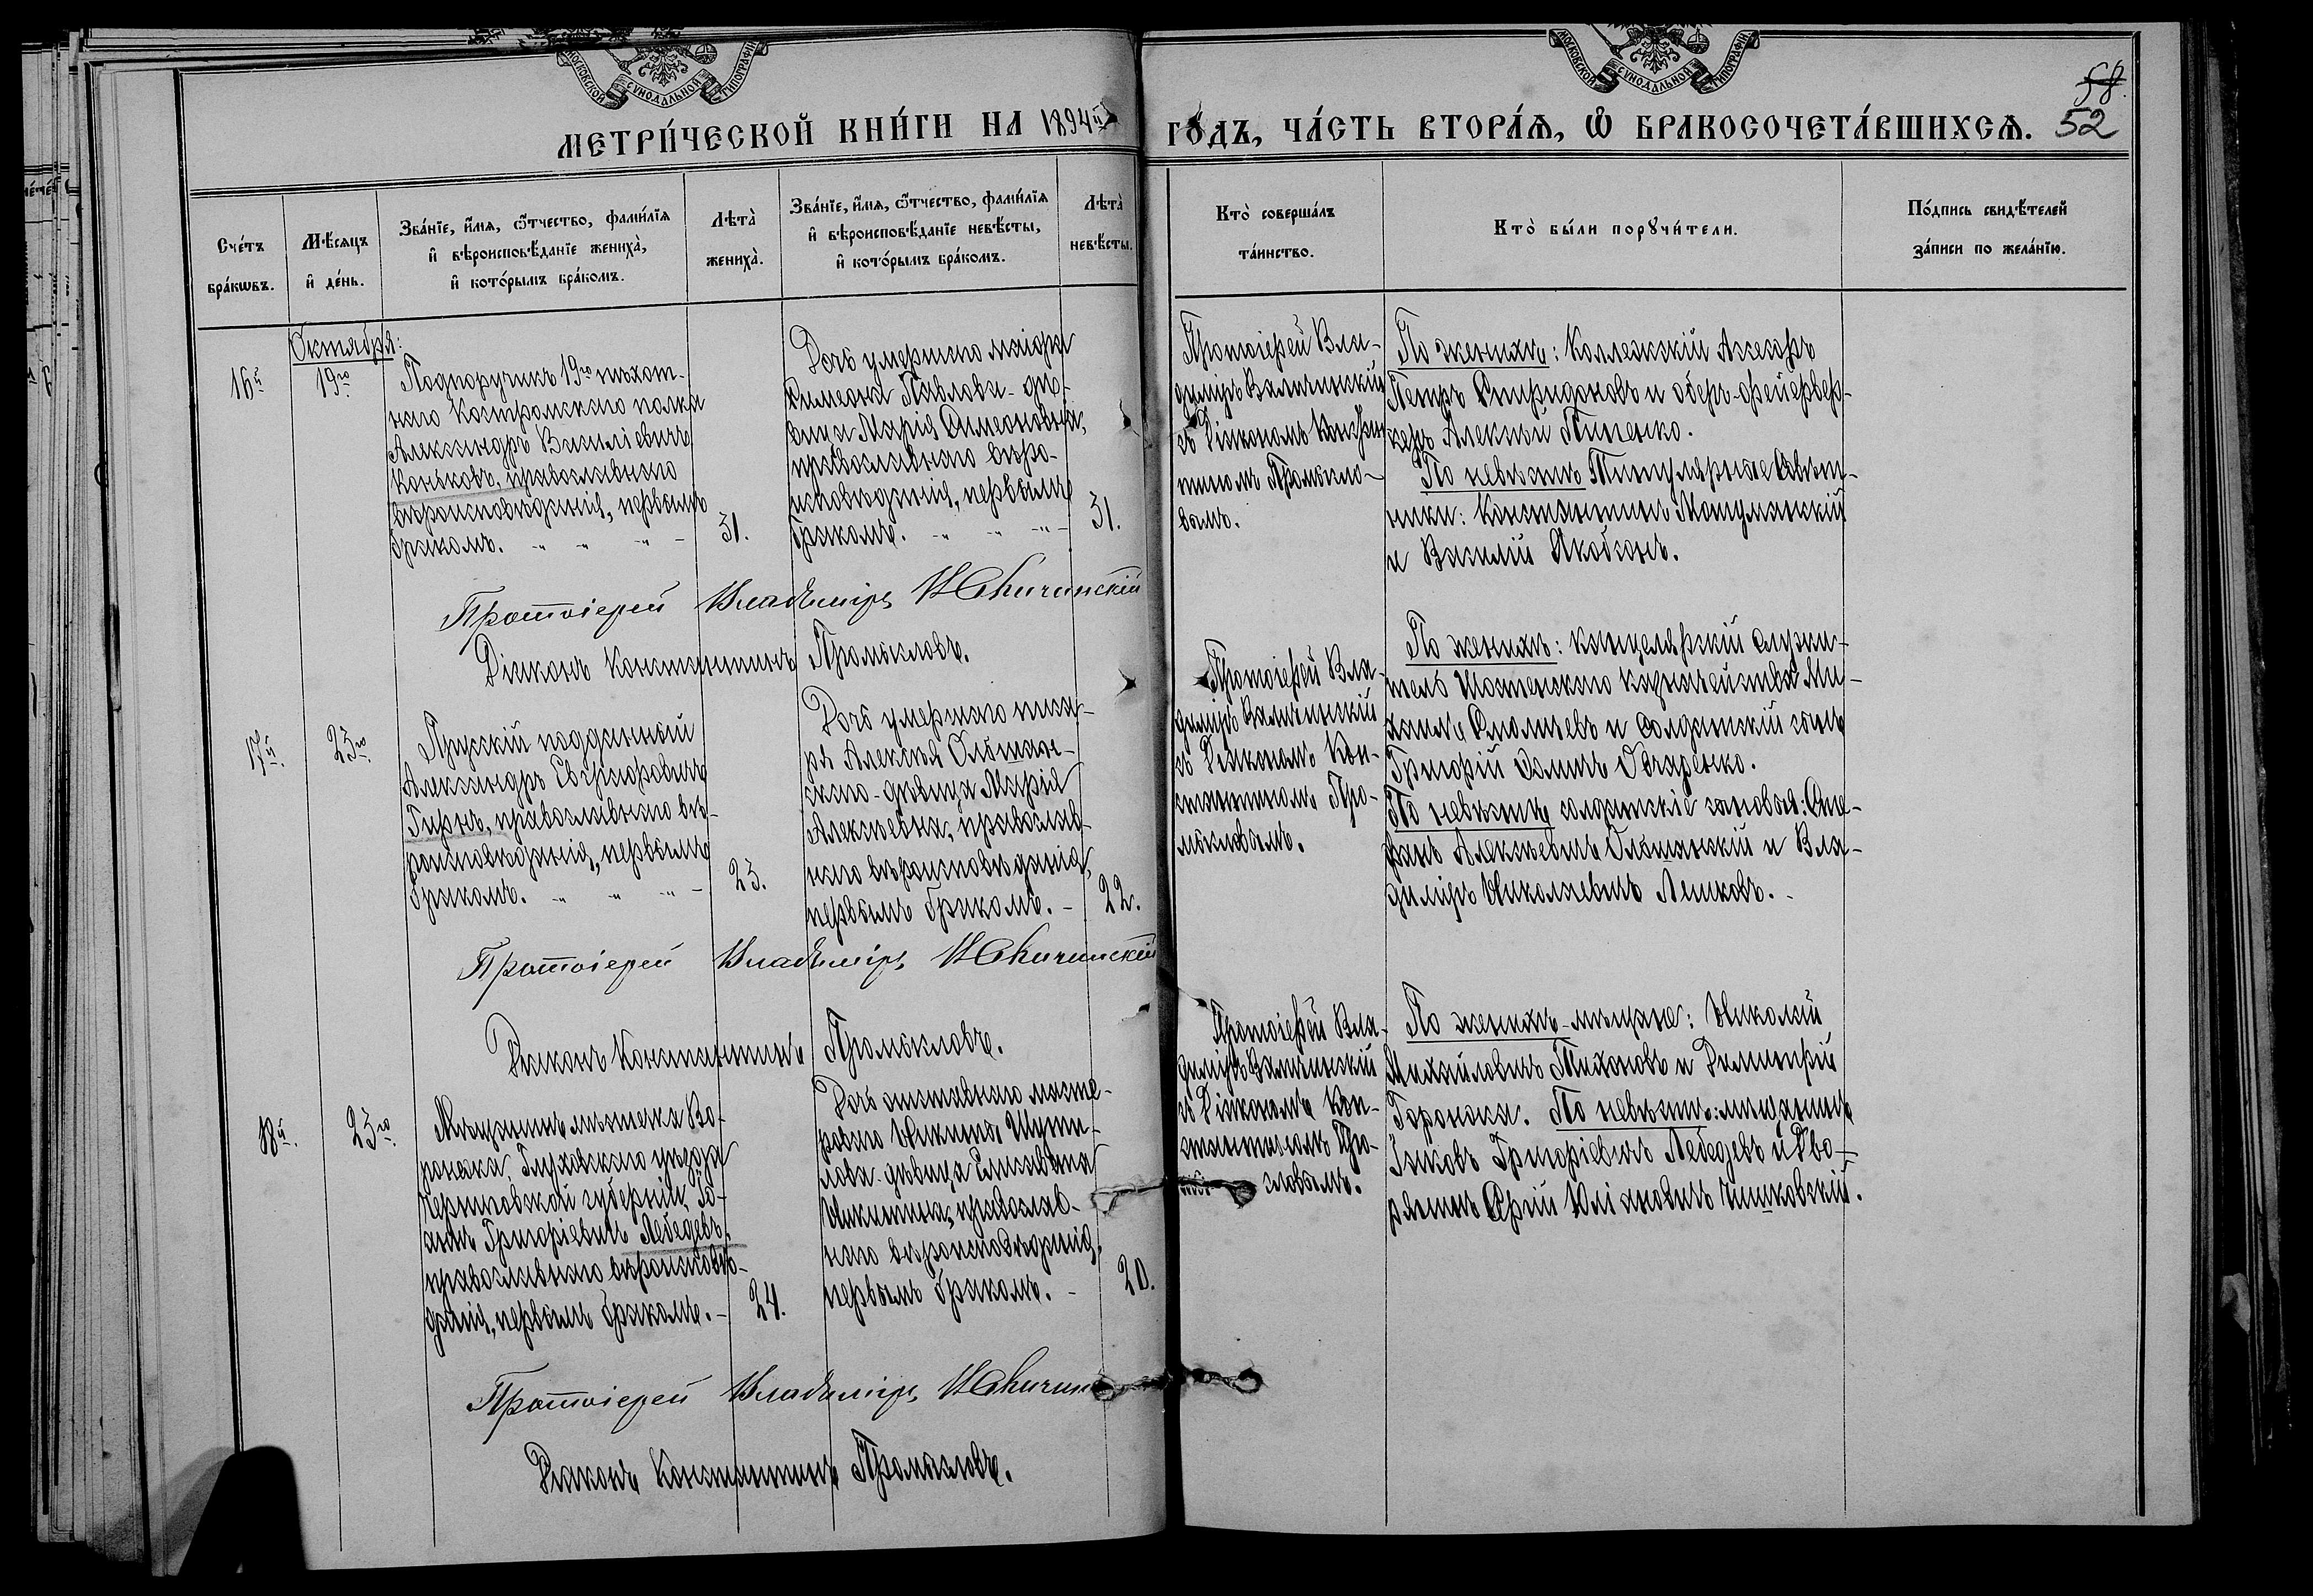 МОСКОВСКОЙ СѴНОДАЛЬНОЙ ТИПОГРАФІИ
МОСКОВСКОЙ СѴНОДАЛЬНОЙ ТИПОГРАФІИ
58.
52
МЕТРИ́ЧЕСКОЙ КНИ́ГИ НА 1894й ГО́ДЪ, ЧА́СТЬ ВТОРА́Ѧ, Ѽ БРАКОСОЧЕТА́ВШИХСѦ.
Сче́тъ
бра́кѡвъ.
Мѣ́сяцъ
и҆ де́нь.
Зва́нїе, и҆́мѧ, ѻ҆́тчество, фамі́лїѧ
и҆ вѣроисповѣ́данїе жениха̀,
и҆ кото́рымъ бра́комъ.
Лѣта̀
жениха̀.
Зва́нїе, и҆́мѧ, ѻ҆́тчество, фамі́лїѧ
и҆ вѣроисповѣ́данїе невѣ́сты,
и҆ кото́рымъ бра́комъ.
Лѣта̀
невѣ́сты.
Кто̀ соверша́лъ
та́инство.
Кто̀ бы́ли порꙋчи́тели.
По́дпись свидѣ́телей
за́писи по жела́нїю.
Октября:
16й
19го
Подпоручикъ 19го пѣхот-
наго Костромскаго полка
Александръ Василіевичъ
Коньковъ, православнаго
вѣроисповѣданія, первымъ
бракомъ.
31.
Дочь умершаго маіора
Симеона Павлова-дѣ-
вица Марія Симеоновна,
православнаго вѣро-
исповѣданія, первымъ
бракомъ.
31.
Протоіерей Вла-
диміръ
съ Діакономъ Констан-
тиномъ Промысло-
вымъ.
По женихѣ: Коллежскій Ассесоръ
Петръ Спиридоновъ и оберъ-фейервер-
керъ Алексѣй
По невѣстѣ Титулярные Совѣт-
ники: Константинъ
и Василій Якобсонъ.
Протоіерей Владиміръ
Діаконъ Константинъ Промысловъ.
17й.
23го.
Прусскій подданный
Александръ
православнаго вѣ-
роисповѣданія, первымъ
бракомъ.
23.
Дочь умершаго писа-
ря Алексѣя Ольшан-
скаго-дѣвица Марія
Алексѣевна, православ-
наго вѣроисповѣданія,
первымъ бракомъ.
22.
Протоіерей Вла-
диміръ
съ Діакономъ Кон-
стантиномъ Про-
мысловымъ.
По женихѣ: канцелярскій служи-
тель Казначейства Ми-
хаилъ и солдатскій сынъ
Григорій Овчаренко.
По невѣстѣ солдатскіе сыновья: Сте-
фанъ Алексѣевичъ Ольшанскій и Вла-
диміръ Николаевичъ Лешковъ.
Протоіерей Владиміръ
Діаконъ Константинъ Промысловъ.
18й.
23го.
Мѣщанинъ мѣстечка Во-
ронежа, Глуховскаго уѣзда
Черниговской губерніи, Іо-
аннъ Григоріевичъ Лебедевъ,
православнаго вѣроисповѣ-
данія, первымъ бракомъ.
24.
Дочь отставнаго масте-
роваго Никиты Шупи-
лова-дѣвица Елисавета
Никитина, православ-
наго вѣроисповѣданія,
первымъ бракомъ.
20.
Протоіерей Вла-
диміръ
съ Діакономъ Кон-
стантиномъ Про-
мысловымъ.
По женихѣ-мѣщане: Николай
Михайловичъ Тихоновъ и Димитрій
По невѣстѣ: мѣщанинъ
Іаковъ Григоріевичъ Лебедевъ и Дво-
рянинъ
Протоіерей Владиміръ
Діаконъ Константинъ Промысловъ.